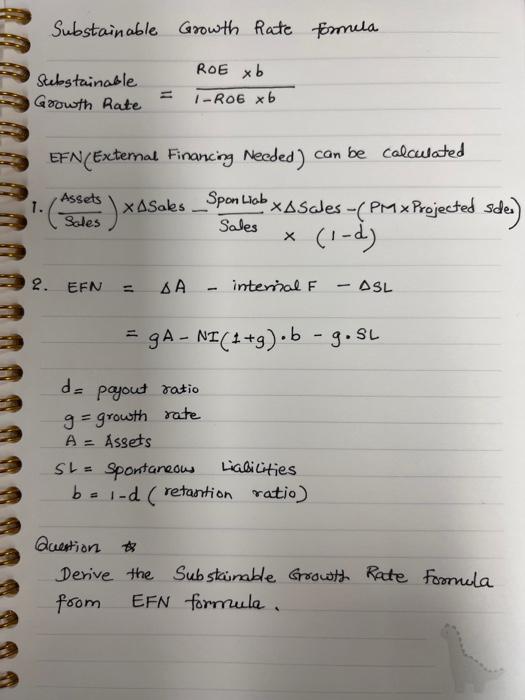 Substainable Growth Rate formula
Substainable Growth Rate = ROE × b / 1 - ROE × b
EFN (External Financing Needed) can be calculated
1. (Assets / Sales) × ΔSales - Spon Liab / Sales × ΔSales - (PM × Projected sales) × (1-d)
2. EFN = ΔA - internal F - ΔSL
= gA - NI(1+g)·b - g·SL
d = payout ratio
g = growth rate
A = Assets
SL = Spontaneous Liabilities
b = 1-d (retantion ratio)
Question ☆
Derive the Substainable Growth Rate Formula
from EFN formula.